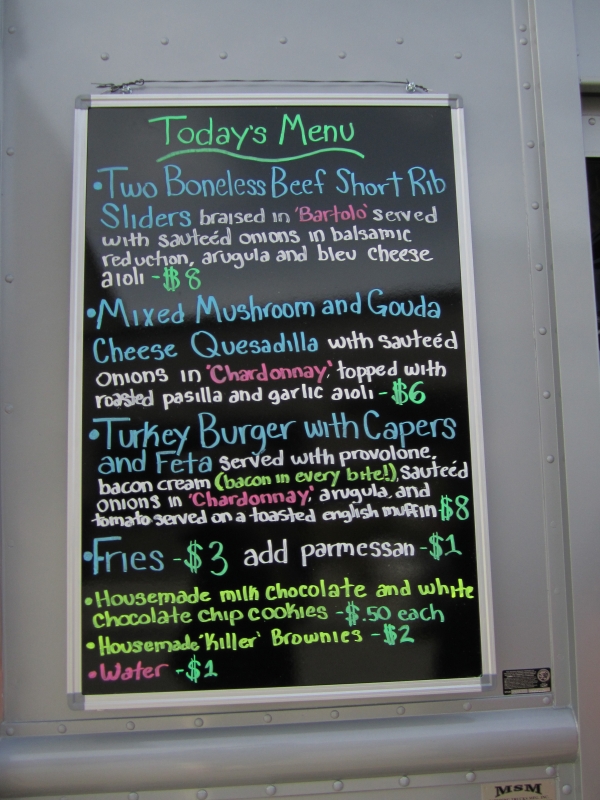 Today's Menu
•Two Boneless Beef Short Rib
Sliders braised in 'Bartolo' served
with sauteéd onions in balsamic
reduction, arugula and bleu cheese
aioli -$8
•Mixed Mushroom and Gouda
Cheese Quesadilla with sauteéd
onions in 'Chardonnay,' topped with
roasted pasilla and garlic aioli -$6
•Turkey Burger with Capers
and Feta served with provolone,
bacon cream (bacon in every bite!), sauteéd
onions in 'Chardonnay,' arugula, and
tomato served on a toasted english muffin $8
•Fries -$3 add parmessan -$1
•Housemade milk chocolate and white
chocolate chip cookies -$.50 each
•Housemade 'Killer' Brownies -$2
•Water -$1
MSM